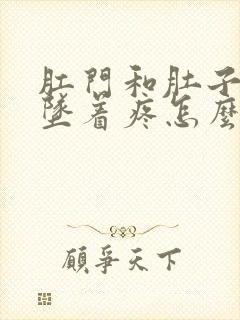 肛門和肚子
墜着疼怎麽
顧爭天下